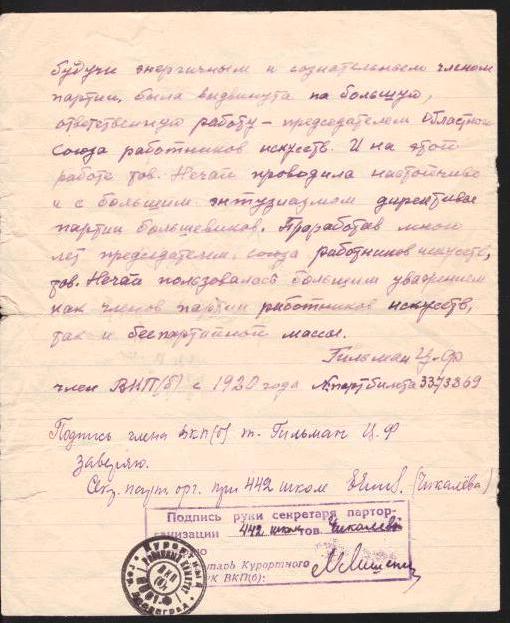 будучи энергичным и сознательным членом
партии, была выдвинута на большую,
ответственную работу – председателем Областного
Союза работников искусств. И на этой
работе тов. Нечай проводила настойчиво
и с большим энтузиазмом директивы
партии большевиков. Проработав много
лет председателем союза работников искусств,
тов. Нечай пользовалась большим уважением
как членов партии работников искусств,
так и беспартийной массы.
Гильман Ц. Ф
член ВКП(б) с 1920 года №партбилета 3373869
Подпись члена ВКП(б) т. Гильман Ц. Ф
заверяю.
Секр. парт. орг. при 442 школе (Чикалёва)
Подпись руки секретаря партор-
ганизации 442 школ тов. Чикалевой
Курортного
РК ВКП(б):